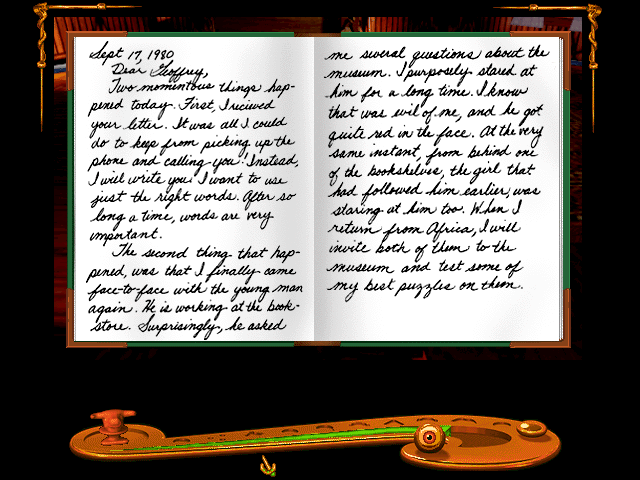 Sept 17, 1980
Dear Geoffrey,
Two momentous things hap-
pened today. First, I recieved
your letter. It was all I could
do to keep from picking up the
phone and calling you! Instead,
I will write you. I want to use
just the right words. After so
long a time, words are very
important.
The second thing that hap-
pened, was that I finally came
face-to-face with the young man
again. He is working at the book-
store. Surprisingly, he asked
me several questions about the
museum. I purposely stared at
him for a long time. I know
that was evil of me, and he got
quite red in the face. At the very
same instant, from behind one
of the bookshelves, the girl that
had followed him earlier, was
staring at him too. When I
return from Africa, I will
invite both of them to the
museum and test some of
my best puzzles on them.